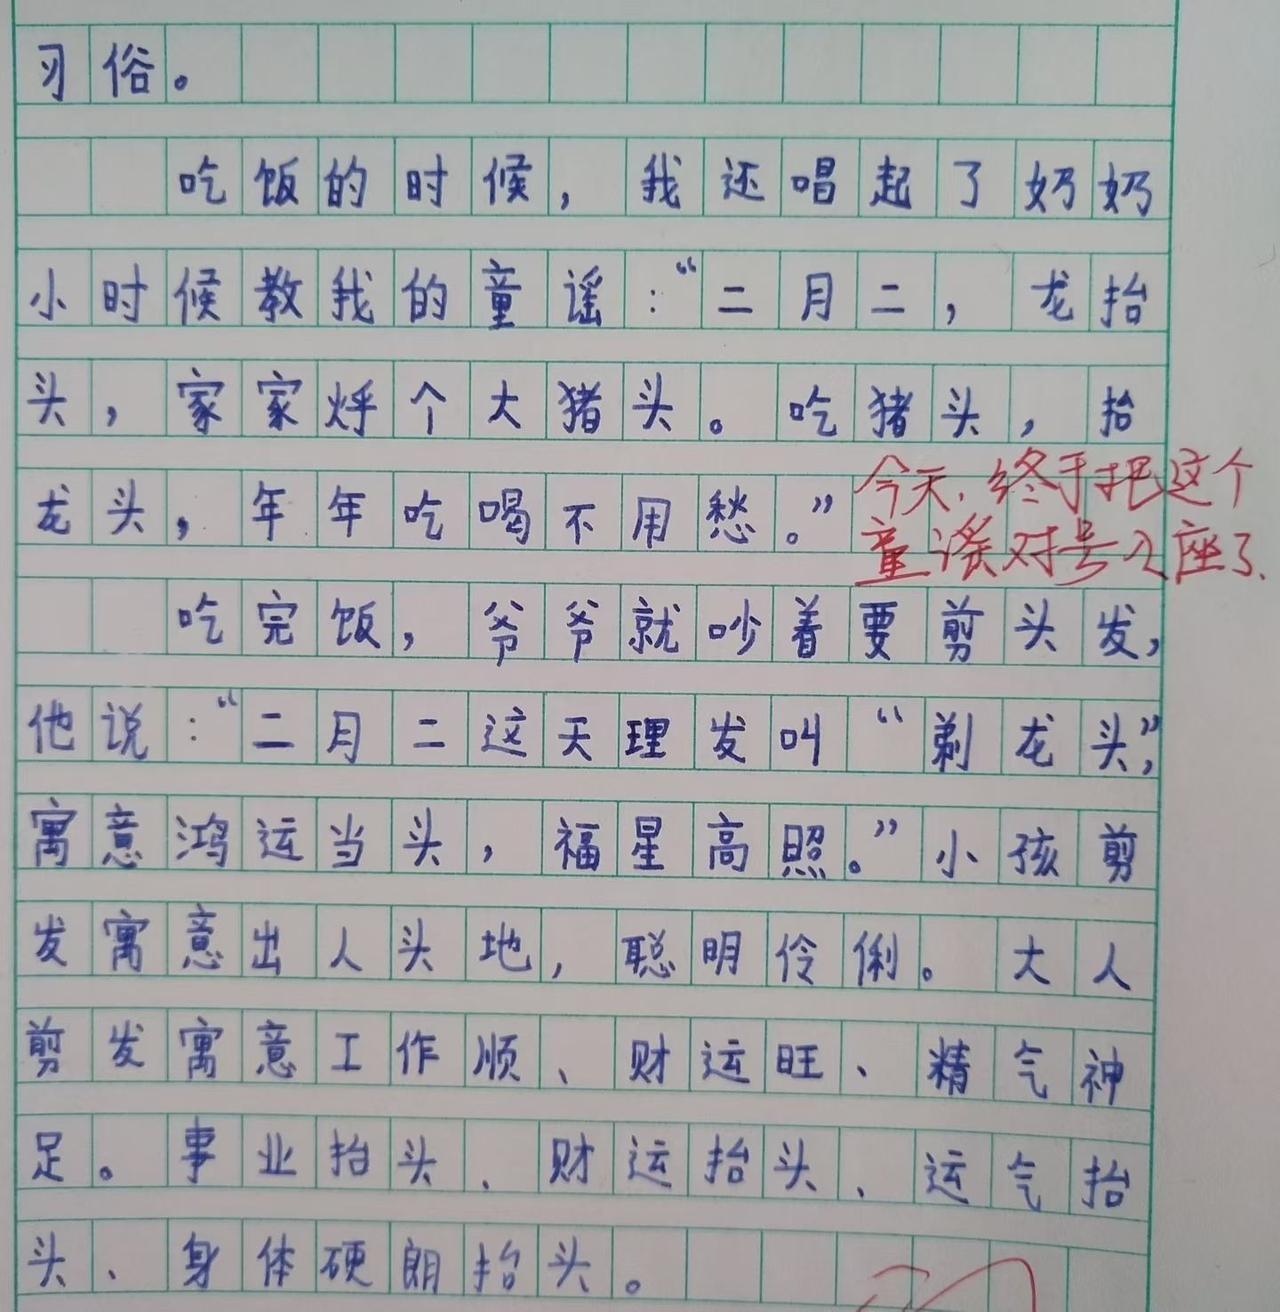 习俗。
吃饭的时候，我还唱起了奶奶
小时候教我的童谣：“二月二，龙抬
头，家家烀个大猪头。吃猪头，抬
龙头，年年吃喝不用愁。”
今天，终于把这个
童谣对号入座了.
吃完饭，爷爷就吵着要剪头发，
他说：“二月二这天理发叫“剃龙头”，
寓意鸿运当头，福星高照。”小孩剪
发寓意出人头地，聪明伶俐。大人
剪发寓意工作顺、财运旺、精气神
足。事业抬头、财运抬头、运气抬
头、身体硬朗抬头。